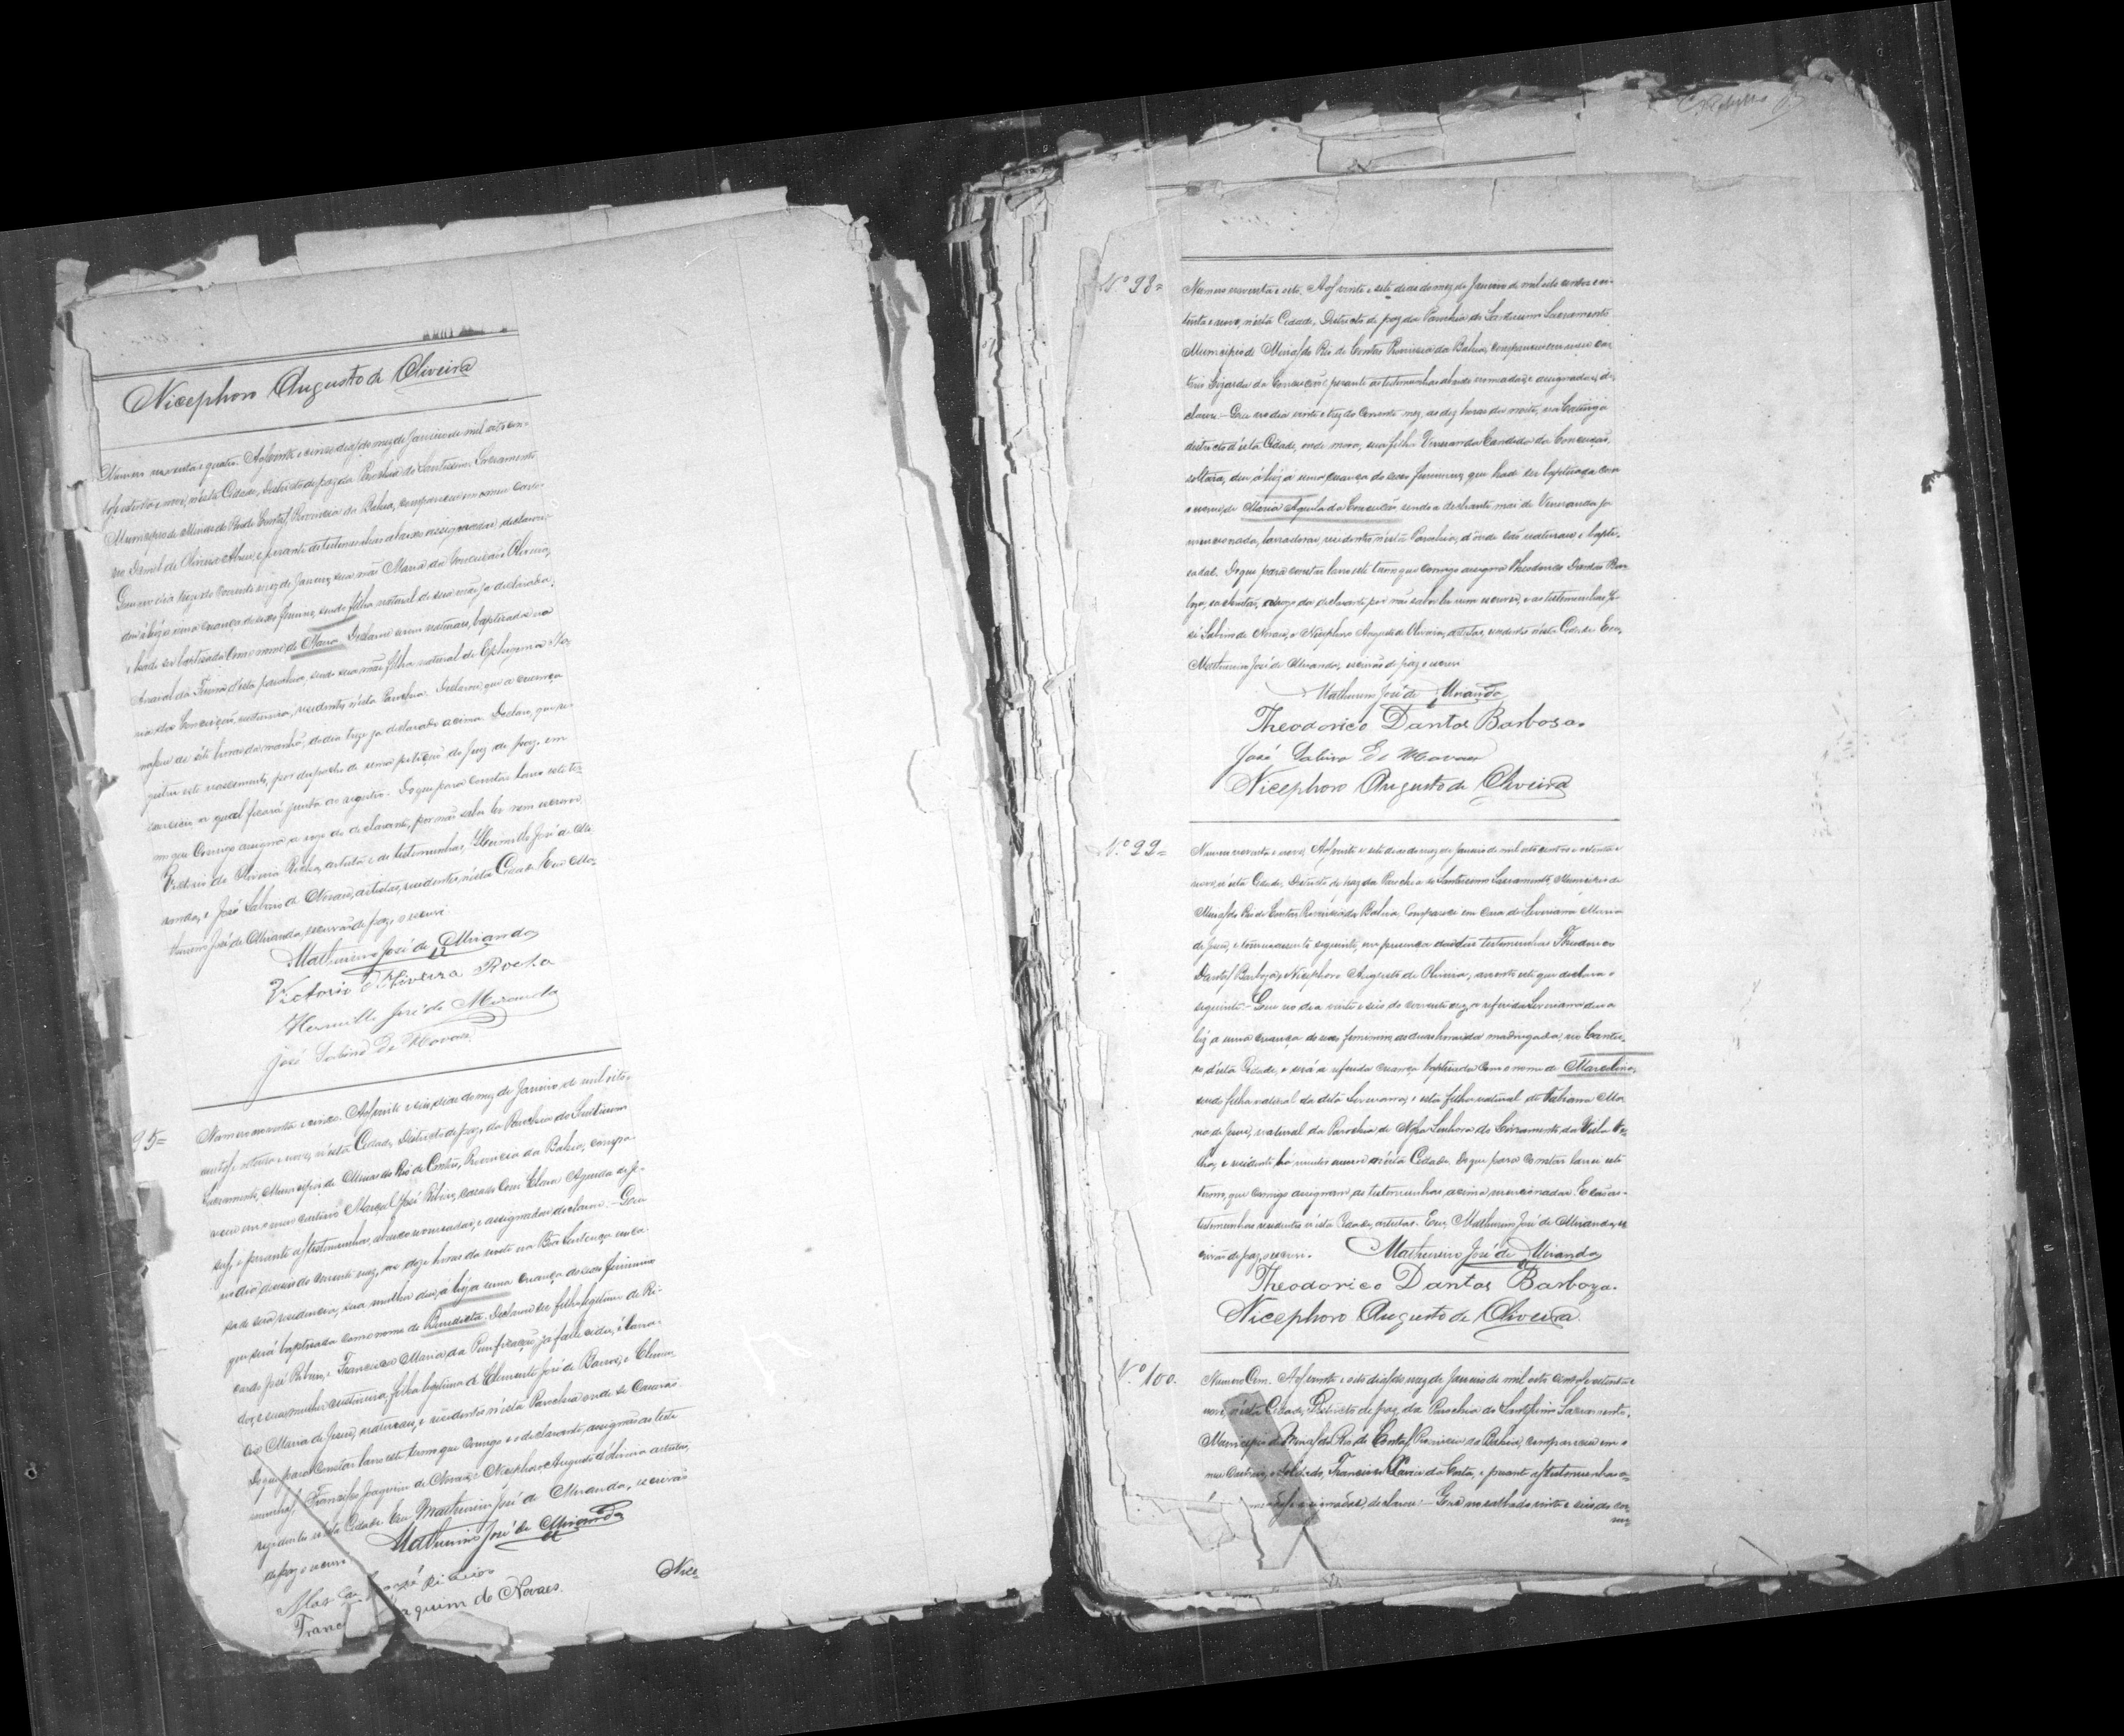 Nicephoro Augusto de Oliveira
Numero noventa e quatro. Aos vinte e cinco dias do mez de Janeiro de mil oito cen-
tos oitenta e nove, n'esta Cidade, Districto de paz da Parochia do Santissimo Sacramento
Municipio de Minas do Rio de Contas, Provincia da Bahia, compareceu em o meu carto-
rio de Oliveira Abreu, e perante as testemunhas abaixo assignadas, declarou:
Que no dia treze do corrente mez de Janeiro, sua mãe Maria da Conceição e Oliveira,
deu á luz a uma criança do sexo femino, sendo filha natural de sua mãe ja declarada,
e hade ser baptisada com o nome de Maria. Declarou serem naturaes, baptisados na
d'esta parochia, sendo sua mãe filha natural de Ephigenia
da Conceição, costureira, residentes n'esta Parochia. Declarou, que a criança
nasceu de sete horas da manhã, do dia treze ja declarado acima. Declaro, que re-
gistrei este nascimento, por despacho de uma petição do Juiz de paz, em
a qual ficará junta ao registro. Do que para constar lavro este ter-
mo que comigo assigna, a rogo do declarante, por não saber ler nem escrever
Victorio de Oliveira Rocha, artista e as testemunhas, Hermillo José de Mi-
randa, e José Sabino de Novaes, artistas, residentes n'esta Cidade. Eu Ma-
thurino José de Miranda, escrivão de paz, o escrevi.
Mathurino José de Miranda
Victorio d'Oliveira Rocha
Hermillo José de Miranda
José Sabino De Novaes.
95=
Numero noventa e cinco. Aos vinte e seis dias do mez de Janeiro de mil oito-
centos e oitenta e nove, n'esta Cidade, Districto de paz, da Parochia do Santissimo
Sacramento, Municipio de Minas do Rio de Contas, Provincia da Bahia, compa-
receu em o meu cartorio Marçal José Ribeiro, casado com Clara Agueda de Je-
sus, e perante as testemunhas, abaixo nomeadas, e assignadas declarou: - Que
no dia do corrente mez, as doze horas da noite na Bôa Sentença em ca-
sa de sua residencia, sua mulher deu, á luz a uma criança do sexo feminino
que será baptisada com o nome de Benedicta. Declarou ser filho legitimo de Ri-
cardo José Ribeiro, e Francisca Maria da Purificação, ja fallecidos, é lavra-
dor, e sua mulher costureira, filha legitima de Clemente José de Barros, e Clemen-
cia Maria de Jesus, naturaes, e residentes n'esta Parochia onde se casarão.
Do que para constar lavro este termo que comigo e o declarante, assignão as teste-
munhas, Francisco Joaquim de Novaes, e Nicephoro Augusto d'Oliveira artistas,
residentes n'esta Cidade. Eu Mathurino José de Miranda, escrivão
de paz o escrevi.
Mathurino José de Miranda
Marçal José Ribeiro
Joaquim de Novaes.
Nice
Nº 98=
Numero noventa e oito. Aos vinte e sete dias do mez de Janeiro de mil oito centos e oi-
tenta e nove, n'esta Cidade, Districto de paz da Parochia do Santissimo Sacramento,
Municipio de Minas do Rio de Contas Provincia da Bahia, compareceu em meu car-
torio da Conceição, e perante as testemunhas abaixo nomeadas, e assignadas, de-
clarou: - Que no dia vinte e trez do corrente mez, as dez horas da noite, na Caatinga
districto d'esta Cidade, onde mora, sua filha Veneranda Candida da Conceição,
solteira, deu á luz á uma criança do sexo femenino, que hade ser baptisada com
o nome, de Maria Aquila da Conceição, sendo a declarante mai de Veneranda ja
mencionada, lavradoras, residentes n'esta Parochia, d'onde são naturaes e bapti-
sadas. Do que para constar lavro este termo que comigo assigna Theodorico Dantas Bar-
boza, a rogo da declarante por não saber ler nem escrever, e as testemunhas Jo-
sé Sabino de Novaes, e Nicephoro Augusto de Oliveira, artistas, residentes n'esta Cidade. Eu,
Mathurino José de Miranda, escrivão de paz, o escrevi
Mathurino José de Miranda
Theodorico Dantas Barbosa.
José Sabino De Novaes
Nicephoro Augusto de Oliveira
Nº 99=
Numero noventa e nove. Aos vinte e sete dias do mez de Janeiro de mil oito centos e oitenta e
nove, n'esta Cidade, Districto de paz da Parochia do Santissimo Sacramento, Municipio de
Minas do Rio de Contas Provincia da Bahia. Compareci em casa de Severiana Maria
de Jesus, e tomei o assento seguinte, em presença das duas testemunhas Theodorico
Dantas Barboza, e Nicephoro Augusto de Oliveira, assento este que declara o
seguinte: - Que no dia vinte e seis do corrente mez, a referida Severiana deu a
luz a uma criança do sexo feminino, as duas horas da madrugada, no
d'esta Cidade, e será a referida criança baptisada com o nome de Marcolina,
sendo filha natural da dita Severiana, e esta filha natural de Fabiana Ma-
ria de Jesus, natural da Parochia de Nossa Senhora do Livramento da Villa Ve-
lha, e residente há muitos annos n'esta Cidade. Do que para constar lavrei este
termo, que comigo assignam, as testemunhas acima mencionadas. E são as
testemunhas residentes n'esta Cidade, artistas. Eu, Mathurino José de Miranda, es-
crivão de paz, o escrevi. Mathurino José de Miranda
Theodorico Dantas Barboza.
Nicephoro Augusto de Oliveira.
Nº 100.
Numero Cem. Aos vinte e oito dias do mez de Janeiro de mil oito centos e oitenta e
nove, n'esta Cidade, Districto de paz, da Parochia do Santissimo Sacramento,
Municipio de Minas do Rio de Contas, Provincia da Bahia, compareceu em o
meu Cartorio, o Soldado, Francisco Xavier da Costa, e perante as testemunhas a-
declarou: - Que no sabbado vinte e seis do cor-